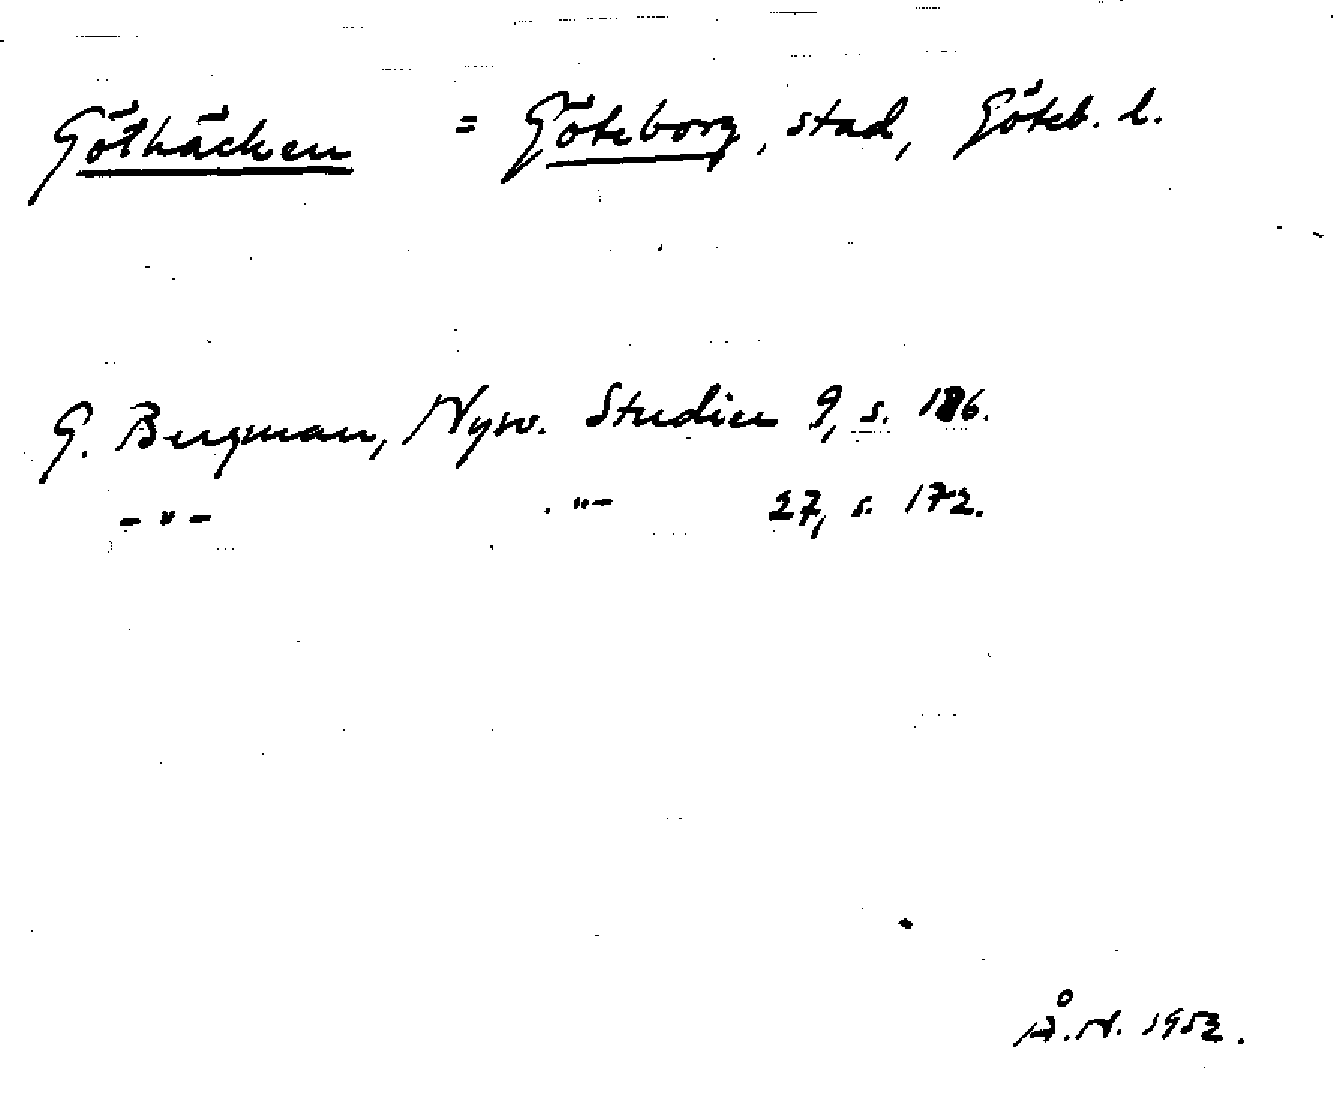 Göthäcken = Göteborg, stad, Göteb. l.
G. Bergman, Nysv. Studier 9, s. 186.
-"- -"- 27, s. 172.
Å.N. 1952.